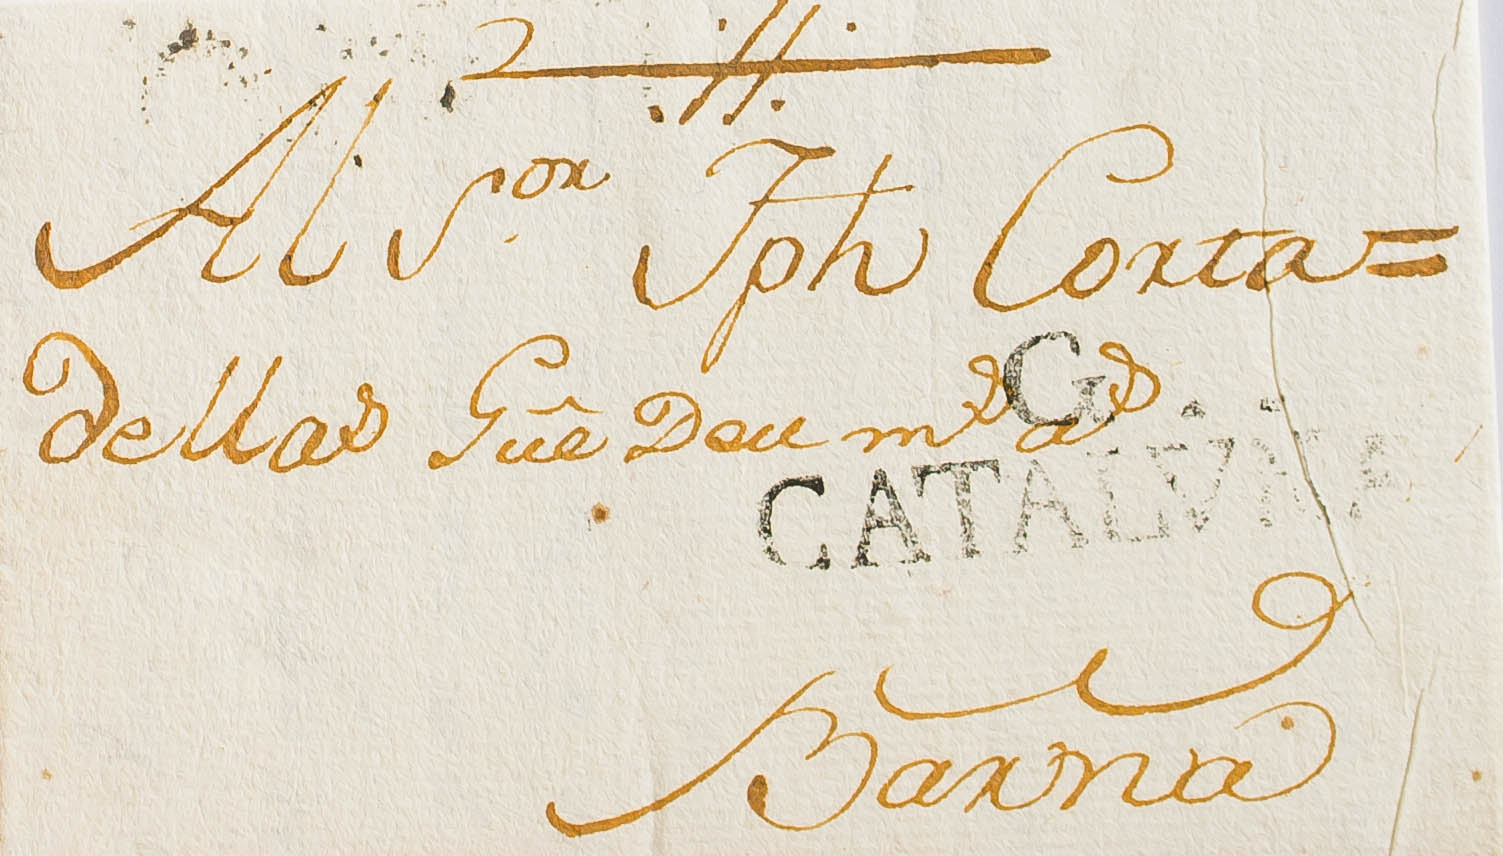 Al S.or Jph Corta=
dellas Gūe Deu m.s a.s
G.
CATALVÑA
Barna